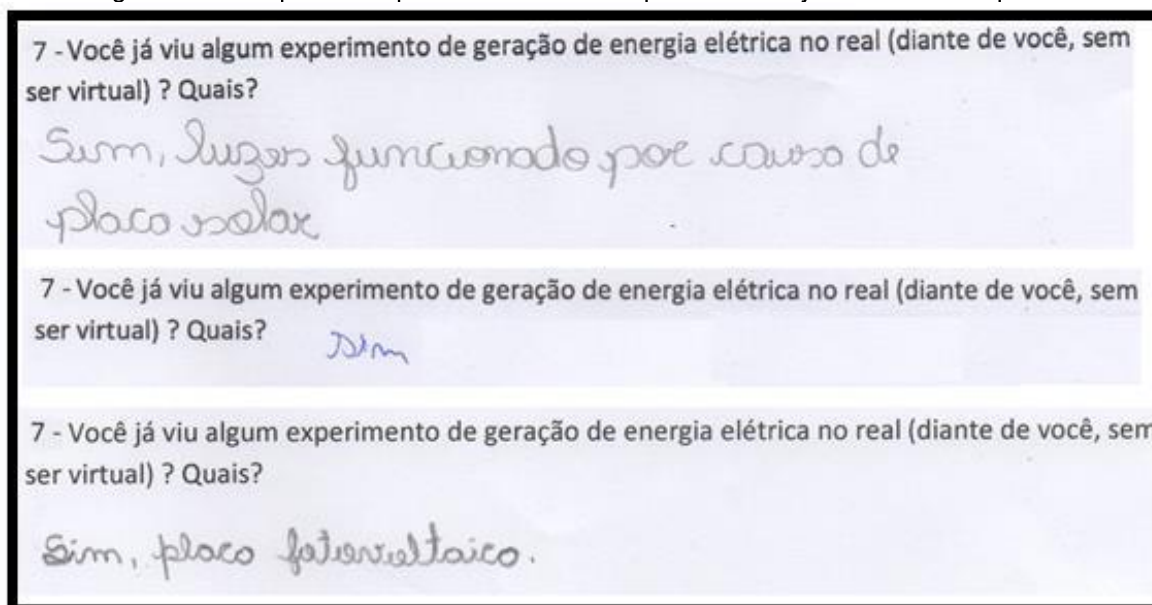 7 - Você já viu algum experimento de geração de energia elétrica no real (diante de você, sem
ser virtual) ? Quais?
Sim, luzes funcionado por causa de
placa solar
7 - Você já viu algum experimento de geração de energia elétrica no real (diante de você, sem
ser virtual) ? Quais?
sim
7 - Você já viu algum experimento de geração de energia elétrica no real (diante de você, sem
ser virtual) ? Quais?
Sim, placa fotovoltaica.